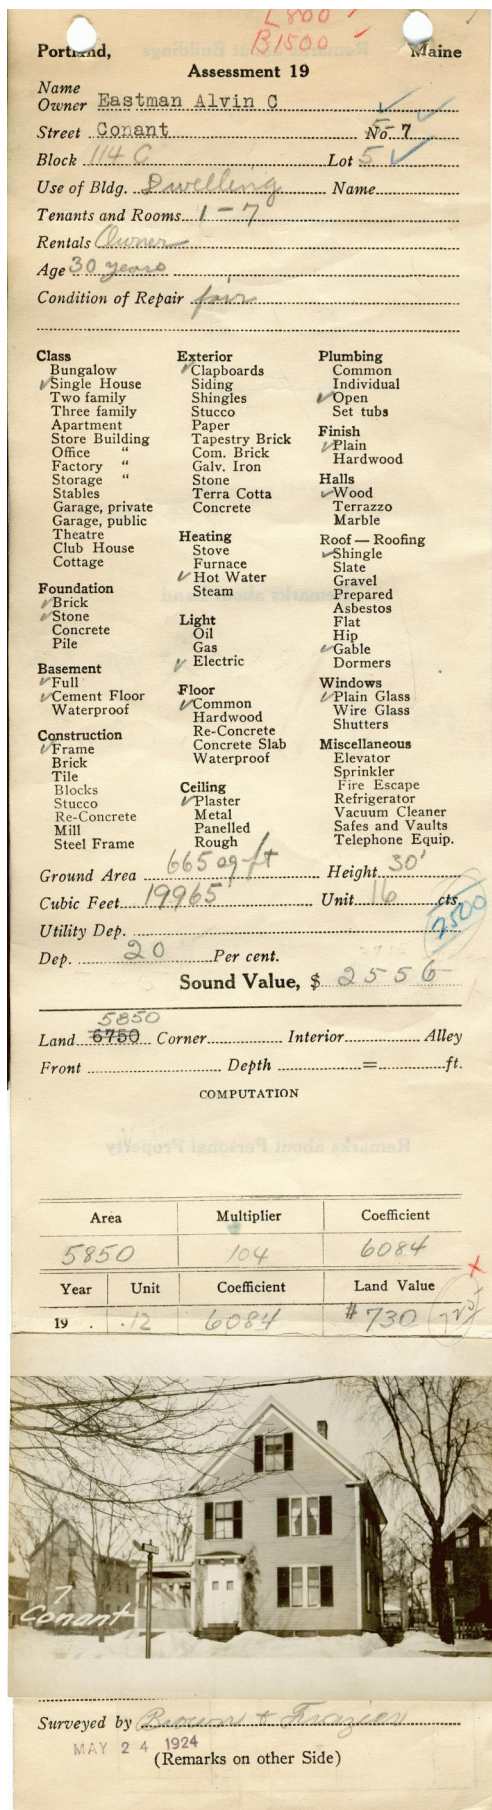 L800
B1500
Portland, Maine
Assessment 19
Name
Owner Eastman Alvin C
Street Conant No. 5-7
Block 114 C Lot 5
Use of Bldg. Dwelling Name
Tenants and Rooms 1-7
Rentals Owner
Age 30 years
Condition of Repair fair
Class
Bungalow
✓Single House
Two family
Three family
Apartment
Store Building
Office "
Factory "
Storage "
Stables
Garage, private
Garage, public
Theatre
Club House
Cottage
Foundation
✓Brick
✓Stone
Concrete
Pile
Basement
✓Full
✓Cement Floor
Waterproof
Construction
✓Frame
Brick
Tile
Blocks
Stucco
Re-Concrete
Mill
Steel Frame
Exterior
✓Clapboards
Siding
Shingles
Stucco
Paper
Tapestry Brick
Com. Brick
Galv. Iron
Stone
Terra Cotta
Concrete
Heating
Stove
Furnace
✓Hot Water
Steam
Light
Oil
Gas
✓Electric
Floor
✓Common
Hardwood
Re-Concrete
Concrete Slab
Waterproof
Ceiling
✓Plaster
Metal
Panelled
Rough
Plumbing
Common
Individual
✓Open
Set tubs
Finish
✓Plain
Hardwood
Halls
✓Wood
Terrazzo
Marble
Roof — Roofing
✓Shingle
Slate
Gravel
Prepared
Asbestos
Flat
Hip
✓Gable
Dormers
Windows
✓Plain Glass
Wire Glass
Shutters
Miscellaneous
Elevator
Sprinkler
Fire Escape
Refrigerator
Vacuum Cleaner
Safes and Vaults
Telephone Equip.
Ground Area 665 sq ft Height 30'
Cubic Feet 19965 Unit 16 cts.
2500
Utility Dep.
Dep. 20 Per cent.
Sound Value, $ 2556
5850
Land 6750 Corner Interior Alley
Front Depth = ft.
COMPUTATION
Area Multiplier Coefficient
5850 104 6084
Year Unit Coefficient Land Value
19 . .12 6084 $730
7
Conant
Surveyed by Brown & Frazier
MAY 24 1924
(Remarks on other Side)